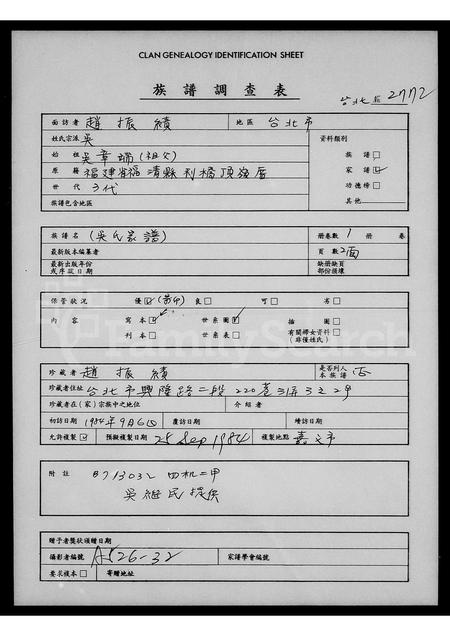 CLAN GENEALOGY IDENTIFICATION SHEET
族譜調查表
台北區 2772
面訪者 趙振績 地區 台北市
姓氏宗派 吳 資料類別
始祖 吳章瑞(祖父) 族譜 □
原籍 福建省福清縣 家譜 ☑
世代 3代 功德榜 □
族譜包含地區 其他
族譜名 (吳氏家譜) 冊卷數 1 冊 卷
最新版本編纂者 頁數 2面
最新出版年份或序跋日期 缺册缺頁部份損壞
保管狀況 優 ☑ (影印) 良 □ 可 □ 劣 □
內容 寫本 ☑ 世系圖 ☑ 插圖 □
刊本 □ 世系表 □ 有關婦女資料(非僅姓氏) □
FamilySearch
珍藏者 趙振績 是否列入本族譜 否
珍藏者住址 台北市興隆路二段220巷31弄3之2号
珍藏者在(家)宗族中之地位 介紹者
初訪日期 1984年9月6日 覆訪日期 續訪日期
允許複製 ☑ 預擬複製日期 25 Sep 1984 複製地點 嘉文市
附註 B713032 四机二甲
吳繼民提供
贈予者獎狀頒贈日期
攝影者編號 A526-32 家譜學會編號
要求複本 □ 寄贈地址